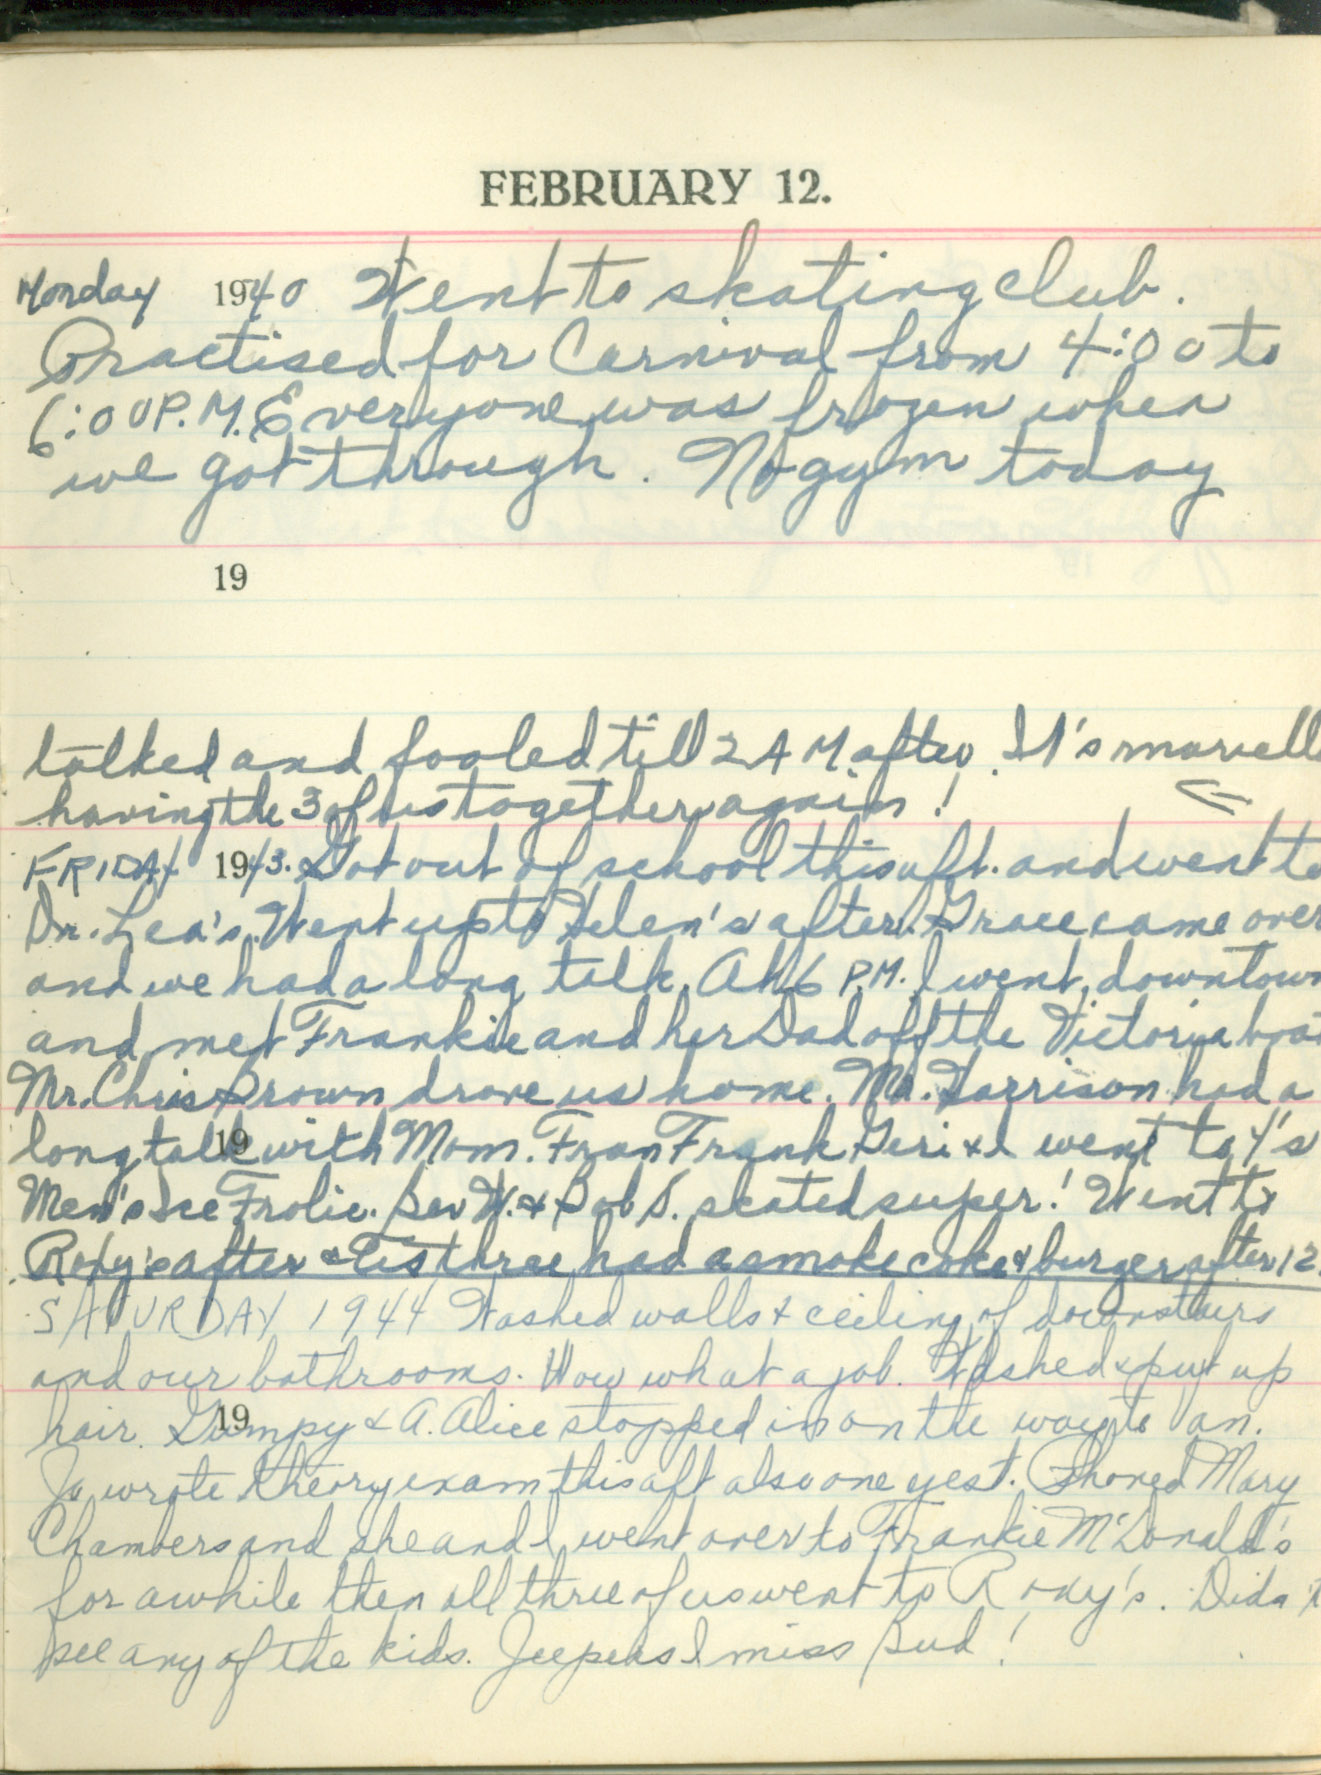 FEBRUARY 12.
Monday 1940 Went to skating club.
Practised for Carnival from 4:00 to
6:00 P.M. Everyone was frozen when
we got through. No gym today
19
talked and fooled till 2 A M. after. It's marvell
having the 3 of us together again!
FRIDAY 1943. Got out of school this aft. and went to
Dr. Lea's. Went up to Helen's after. Grace came over
and we had a long talk. At 6 P.M. I went downtown
and met Frankie and her Dad off the Victoria boat
Mr. Chris Brown drove us home. Mr. Harrison had a
long talk with Mom. Fran Frank Geri & I went to Y's
19
Men's Ice Frolic. Bev W. & Bob S. skated super! Went to
Rody's after & us three had a smoke coke & burger after 12.
SATURDAY 1944 Washed walls & ceiling of downstairs
and our bathrooms. Wow what a job. Washed & put up
hair. Gumpy & A. Alice stopped in on the way to an.
19
Jo wrote theory exam this aft also one yest. Phoned Mary
Chambers and she and I went over to Frankie McDonald's
for awhile then all three of us went to Rody's. Didn't
see any of the kids. Jeepers I miss Bud!